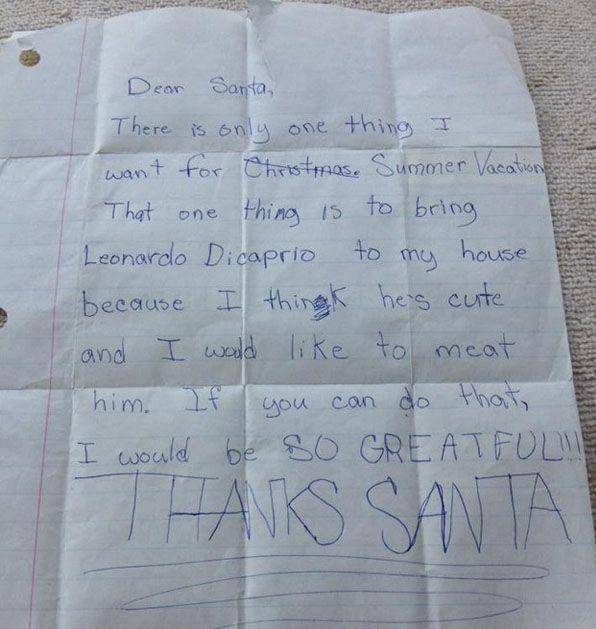 Dear Santa,
There is only one thing I
want for Christmas. Summer Vacation
That one thing is to bring
Leonardo Dicaprio to my house
because I think he's cute
and I would like to meat
him. If you can do that,
I would be SO GREATFUL!!!
THANKS SANTA